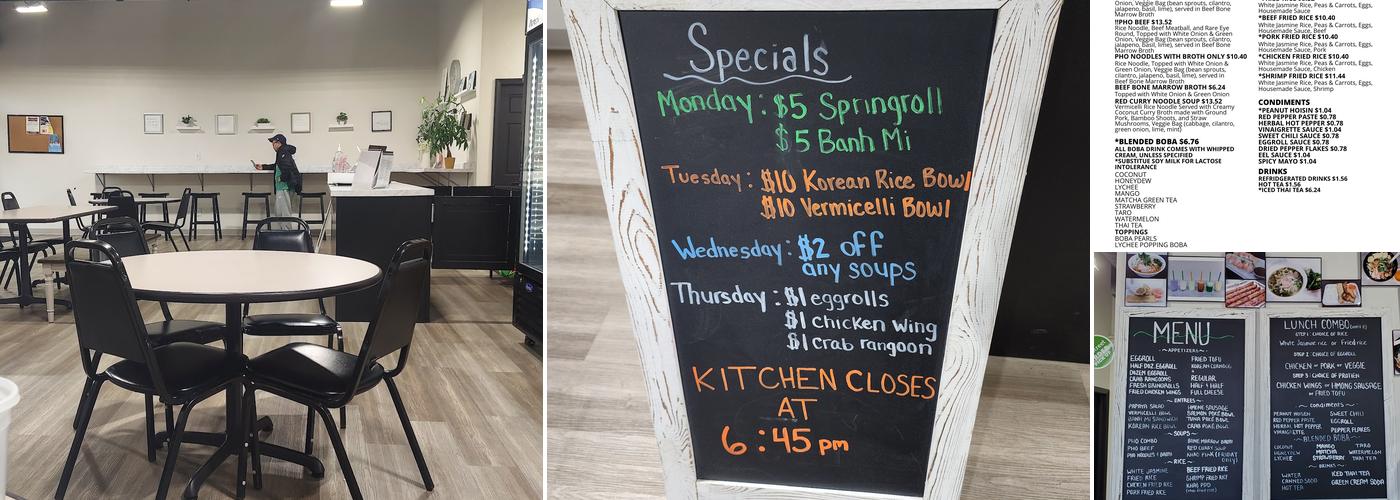 Specials
Monday: $5 Springroll
$5 Banh Mi
Tuesday: $10 Korean Rice Bowl
$10 Vermicelli Bowl
Wednesday: $2 off
any soups
Thursday: $1 eggrolls
$1 chicken wing
$1 crab rangoon
KITCHEN CLOSES
AT
6:45 pm
Onion, Veggie Bag (bean sprouts, cilantro,
jalapeno, basil, lime), served in Beef Bone
Marrow Broth
!!PHO BEEF $13.52
Rice Noodle, Beef Meatball, and Rare Eye
Round, Topped with White Onion & Green
Onion, Veggie Bag (bean sprouts, cilantro,
jalapeno, basil, lime), served in Beef Bone
Marrow Broth
PHO NOODLES WITH BROTH ONLY $10.40
Rice Noodle, Topped with White Onion &
Green Onion, Veggie Bag (bean sprouts,
cilantro, jalapeno, basil, lime), served in
Beef Bone Marrow Broth
BEEF BONE MARROW BROTH $6.24
Topped with White Onion & Green Onion
RED CURRY NOODLE SOUP $13.52
Vermicelli Rice Noodle Served with Creamy
Coconut Curry Broth made with Ground
Pork, Bamboo Shoots, and Straw
Mushrooms, Veggie Bag (cabbage, cilantro,
green onion, lime, mint)
*BLENDED BOBA $6.76
ALL BOBA DRINK COMES WITH WHIPPED
CREAM, UNLESS SPECIFIED
*SUBSTITUE SOY MILK FOR LACTOSE
INTOLERANCE
COCONUT
HONEYDEW
LYCHEE
MANGO
MATCHA GREEN TEA
STRAWBERRY
TARO
WATERMELON
THAI TEA
TOPPINGS
BOBA PEARLS
LYCHEE POPPING BOBA
White Jasmine Rice, Peas & Carrots, Eggs,
Housemade Sauce
*BEEF FRIED RICE $10.40
White Jasmine Rice, Peas & Carrots, Eggs,
Housemade Sauce, Beef
*PORK FRIED RICE $10.40
White Jasmine Rice, Peas & Carrots, Eggs,
Housemade Sauce, Pork
*CHICKEN FRIED RICE $10.40
White Jasmine Rice, Peas & Carrots, Eggs,
Housemade Sauce, Chicken
*SHRIMP FRIED RICE $11.44
White Jasmine Rice, Peas & Carrots, Eggs,
Housemade Sauce, Shrimp
CONDIMENTS
*PEANUT HOISIN $1.04
RED PEPPER PASTE $0.78
HERBAL HOT PEPPER $0.78
VINAIGRETTE SAUCE $1.04
SWEET CHILI SAUCE $0.78
EGGROLL SAUCE $0.78
DRIED PEPPER FLAKES $0.78
EEL SAUCE $1.04
SPICY MAYO $1.04
DRINKS
REFRIDGERATED DRINKS $1.56
HOT TEA $1.56
*ICED THAI TEA $6.24
MENU
~APPETIZERS~
EGGROLL
HALF DOZ. EGGROLL
DOZEN EGGROLL
CRAB RANGOONS
FRESH SPRINGROLLS
FRIED CHICKEN WINGS
FRIED TOFU
KOREAN CORNDOG
REGULAR
HALF & HALF
FULL CHEESE
~ENTREES~
PAPAYA SALAD
VERMICELLI BOWL
BANH MI SANDWICH
KOREAN RICE BOWL
HMONG SAUSAGE
SALMON POKE BOWL
TUNA POKE BOWL
CRAB POKE BOWL
~SOUPS~
PHO COMBO
PHO BEEF
PHO NOODLES & BROTH
BONE MARROW BROTH
RED CURRY SOUP
~RICE~
WHITE JASMINE
FRIED RICE
CHICKEN FRIED RICE
PORK FRIED RICE
BEEF FRIED RICE
SHRIMP FRIED RICE
LUNCH COMBO
STEP 1: CHOICE OF RICE
White Jasmine rice or Fried rice
STEP 2: CHOICE OF EGGROLL
CHICKEN or PORK or VEGGIE
STEP 3: CHOICE OF PROTIEN
CHICKEN WINGS or HMONG SAUSAGE
or FRIED TOFU
~condiments~
PEANUT HOISEN
RED PEPPER PASTE
HERBAL HOT PEPPER
VINAIGRETTE
SWEET CHILI
EGGROLL
PEPPER FLAKES
~BLENDED BOBA~
COCONUT
HONEYDEW
LYCHEE
MANGO
MATCHA
STRAWBERRY
TARO
WATERMELON
THAI TEA
~DRINKS~
WATER
CANNED SODA
HOT TEA
ICED THAI TEA
GREEN CREAM SODA